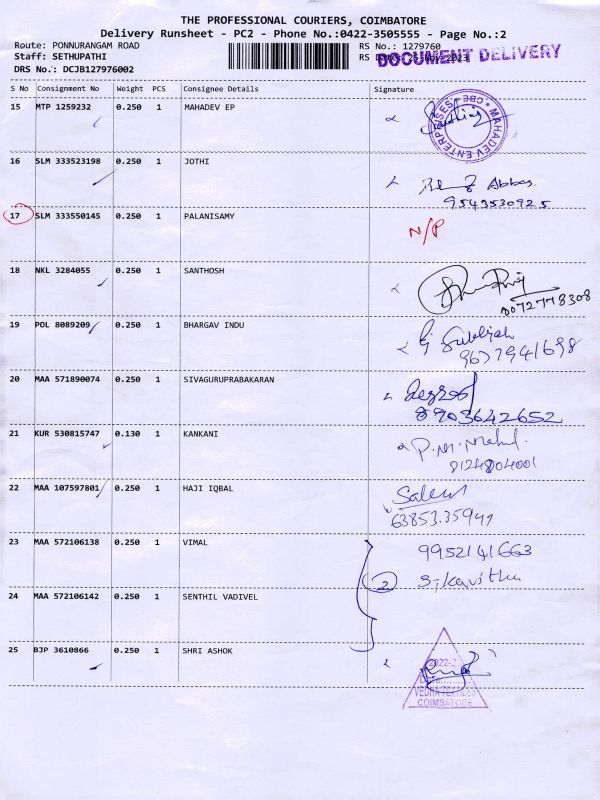 THE PROFESSIONAL COURIERS, COIMBATORE
Delivery Runsheet - PC2 - Phone No.:0422-3505555 - Page No.:2
Route: PONNURANGAM ROAD
Staff: SETHUPATHI
DRS No.: DCJB127976002
RS No.: 1279760
RS
DOCUMENT DELIVERY
S No Consignment No Weight PCS Consignee Details Signature
15 MTP 1259232 0.250 1 MAHADEV EP
MAHADEV ENTERPRISES CBE
16 SLM 333523198 0.250 1 JOTHI
Abbas
9543530925
17 SLM 333550145 0.250 1 PALANISAMY N/P
18 NKL 3284055 0.250 1 SANTHOSH
19 POL 8089209 0.250 1 BHARGAV INDU
9677941698
20 MAA 571890074 0.250 1 SIVAGURUPRABAKARAN
8903642652
21 KUR 530815747 0.130 1 KANKANI
8124804001
22 MAA 107597801 0.250 1 HAJI IQBAL
Salem
63853.35947
23 MAA 572106138 0.250 1 VIMAL
9952141663
2
24 MAA 572106142 0.250 1 SENTHIL VADIVEL
25 BJP 3610866 0.250 1 SHRI ASHOK
COIMBATORE